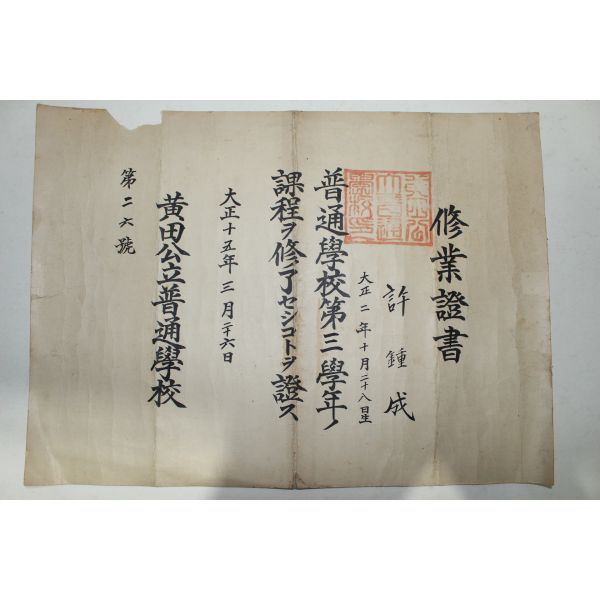 修業證書
許鍾成
大正二年十月二十八日生
普通學校第三學年ノ
課程ヲ修了セシコトヲ證ス
大正十五年三月二十六日
黃田公立普通學校
第二六號